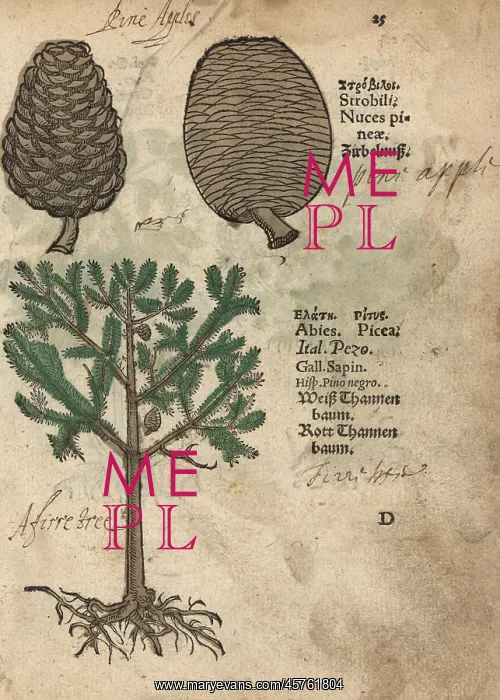 Pine Apples
25
Στρόβιλοι.
Strobili;
Nuces pi-
neæ.
Zirbelnuß.
pine apple
ME
PL
Ελάτη. Πίτυς.
Abies. Picea;
Ital. Pezo.
Gall. Sapin.
Hisp. Pino negro.
Weiß Thannen
baum.
Rott Thannen
baum.
A firre tree
D
ME
PL
www.maryevans.com/45761804